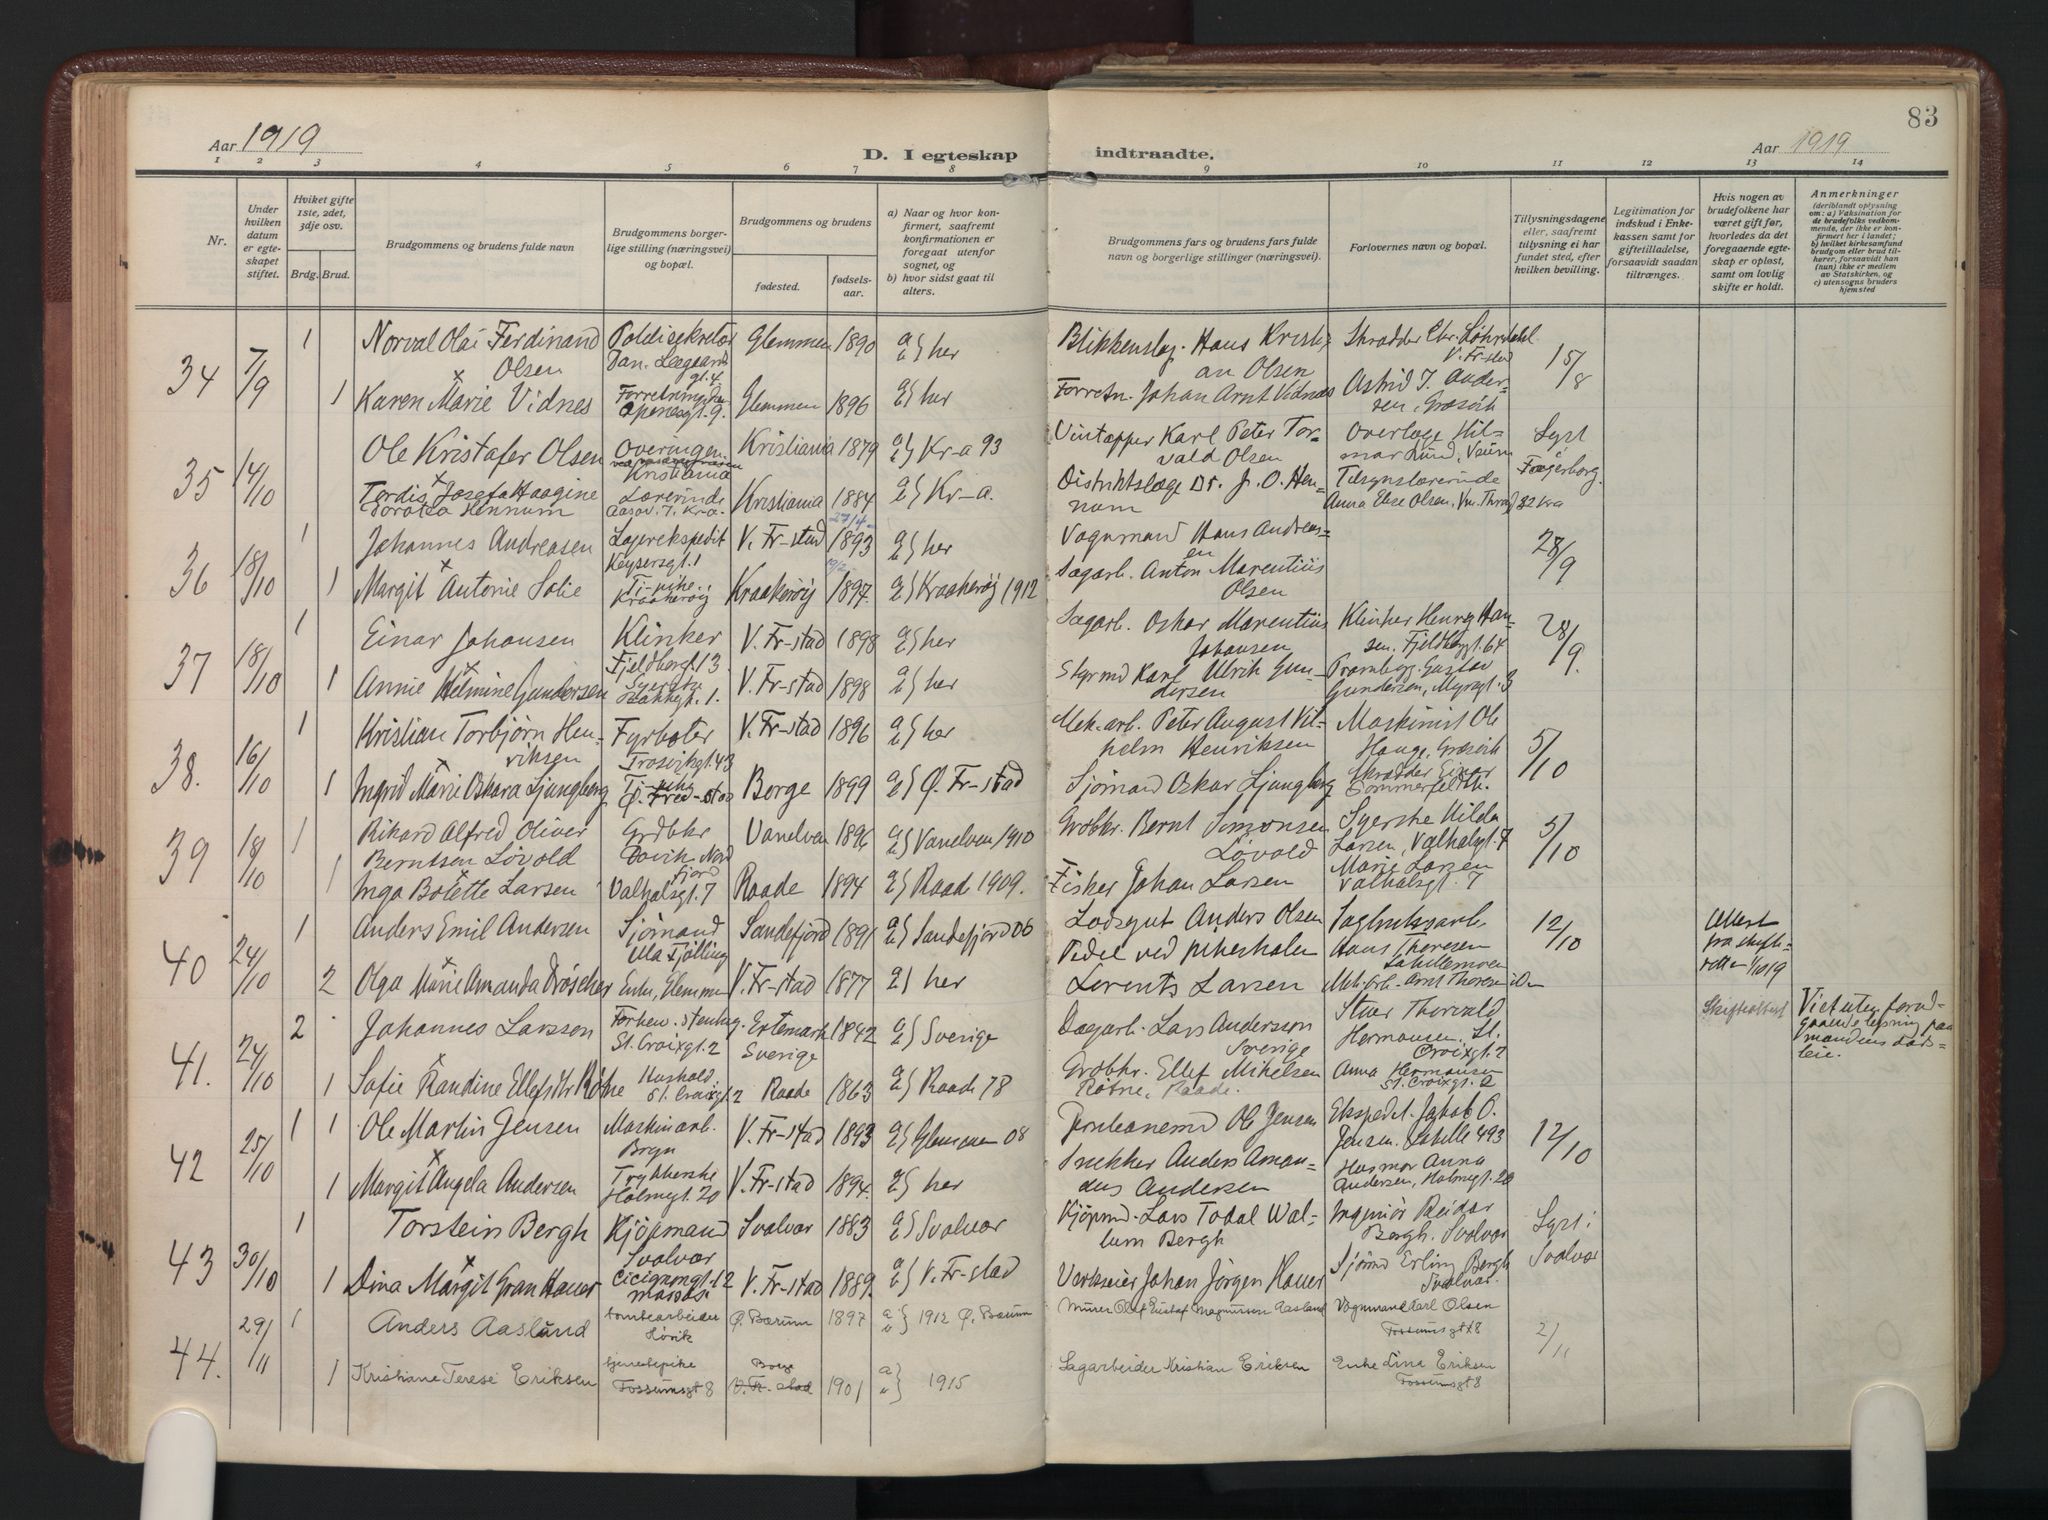 83
Aar 1919
D. I egteskap indtraadte.
Aar 1919
1 2 3 4 5 6 7 8 9 10 11 12 13 14
Nr.
Under hvilken datum er egteskapet stiftet.
Hviket gifte 1ste, 2det, 3dje osv.
Brdg. Brud.
Brudgommens og brudens fulde navn
Brudgommens borgerlige stilling (næringsvei) og bopæl.
Brudgommens og brudens
fødested.
fødselsaar.
a) Naar og hvor konfirmert, saafremt konfirmationen er foregaat utenfor sognet, og
b) hvor sidst gaat til alters.
Brudgommens fars og brudens fars fulde navn og borgerlige stillinger (næringsvei).
Forlovernes navn og bopæl.
Tillysningsdagene eller, saafremt tillysning ei har fundet sted, efter hvilken bevilling.
Legitimation for indskud i Enkekassen samt for giftetilladelse, forsaavidt saadan tiltrænges.
Hvis nogen av brudefolkene har været gift før, hvorledes da det foregaaende egteskap er opløst, samt om lovlig skifte er holdt.
Anmerkninger
(deriblandt oplysning om: a) Vaksination for de brudefolks vedkommende, der ikke er konfirmert her i landet; b) hvilket kirkesamfund brudgom eller brud tilhører, forsaavidt han (hun) ikke er medlem av Statskirken, og c) utensogns bruders hjemsted
34 7/9 1 Norval Olai Ferdinand Olsen Politisekretær Glemmen 1890 her Blikkenslag. Hans Kristian Olsen Skrædder Chr. V. Fr-stad 15/8
1 Karen Marie Vidnes Glemmen 1896 her Forretn. Johan Arnt Vidnes Astrid J. Andersen, Græsvik
35 14/10 Ole Kristofer Olsen Overingen. Kristiania Kristiania 1879 Kr-a 93 Vintapper Karl Peter Torvald Olsen Overlæge Hilmar Lund, Veum Lyst Fagerborg.
Tordis Josefa Haagine Dorotea Hennum Lærerinde Kristiania 1884 Kr-a. Distriktslæge Dr. J. O. Hennum Tilsynslærerinde Anna Else Olsen
36 18/10 1 Johannes Andreasen Lagerekspedit Keysersgt. 1 V. Fr-stad 27/4 1893 her Vognmand Hans Andreasen 28/9
1 Margit Antonie Solie Kraakerøy Kraakerøy 1897. Kraakerøy 1912 Sagarb. Anton Marentius Olsen
37 18/10 1 Einar Johansen Klinker Fjeldbergt. 13 V. Fr-stad 1898 her Sagarb. Oskar Marentius Johansen Klinker Henry Hansen, Fjeldbergt. 64 28/9.
1 Annie Gundersen V. Fr-stad 1898 her Styrmd Karl Ulrik Gundersen Gustav Gundersen, Myrgt. 3
38. 16/10 1 Kristian Torbjørn Henriksen Fyrbøter Trosvikgt. 43 V. Fr-stad 1896 her Mek. arb. Peter August Vilhelm Henriksen Maskinist Ole Hauge, Græsvik 5/10
1 Ingrid Marie Oskara Ljungberg Ø. Fred-stad Borge 1899 Ø. Fr-stad Sjømand Oskar Ljungberg Skrædder Einar
39 18/10 1 Rikard Alfred Oliver Berntsen Løvold Grdbkr Davik Nordfjord Vanelven 1896 Vanelven 1910 Grdbkr. Bernt Simonsen Løvold Syerske Hilda Larsen, Valhalsgt. 7 5/10
1 Inga Bolette Larsen Valhalsgt. 7 Raade 1894 Raade 1909. Fisker Johan Larsen Marie Larsen Valhalsgt. 7
40 24/10 1 Anders Emil Andersen Sjømand Sandefjord 1891 Sandefjord 06 Lodsgut Anders Olsen Hans Thoresen 12/10 Attest fra skifteretten 1/10 19
2 Olga Marie Amanda Drøscher Enke, Glemmen V. Fr-stad 1877 her Pedel ved pikeskolen Lorents Larsen Mek. arb. Arnt Thoresen
41. 24/10 2 Johannes Larsson St. Croixgt. 2 Sverige 1842 Sverige Dagarb. Lars Andersson Sverige Thorvald Hermansen, St. Croixgt. 2 Skifteattest Viet uten forudgaaende lysning paa mandens dødsleie.
1 Sofie Randine Ellefsdtr Røtne St. Croixgt. 2 Raade 1863 Raade 78 Grdbkr. Ellef Mikelsen Røtne, Raade. Anna Hermansen St. Croixgt. 2
42 25/10 1 1 Ole Martin Jensen Maskinarb. V. Fr-stad 1893 Glemmen 08 Ole Jensen Ekspedit. Jakob O. Jensen 12/10
1 Margit Angela Andersen Trykkerske Holmegt. 20 V. Fr-stad 1894. her Snekker Anders Amandus Andersen Husmor Anna Andersen, Holmegt. 20
43 30/10 1 Torstein Bergh Kjøpmand Svolvær Svolvær 1883 Svolvær Kjøpmd. Lars Todal Wallum Bergh Ingeniør Reidar Bergh, Svolvær Lyst i Svolvær
1 Dina Margit Gran Hauer Cicignongt. 12 V. Fr-stad 1889. V. Fr-stad Verkseier Johan Jørgen Hauer Sjømd Erling Bergh Svolvær.
44. 29/11 1 Anders Aasland tomtearbeider Høvik Ø. Bærum 1897 1912 Ø. Bærum Murer Olaf Gustaf Magnussen Aasland Vognmand Karl Olsen Fossumsgt 8 2/11
1 Kristiane Terese Eriksen tjenestepike Fossumsgt 8 Borge V. Fr. stad 1901 1915 Sagarbeider Kristian Eriksen Enke Lina Eriksen Fossumsgt 8